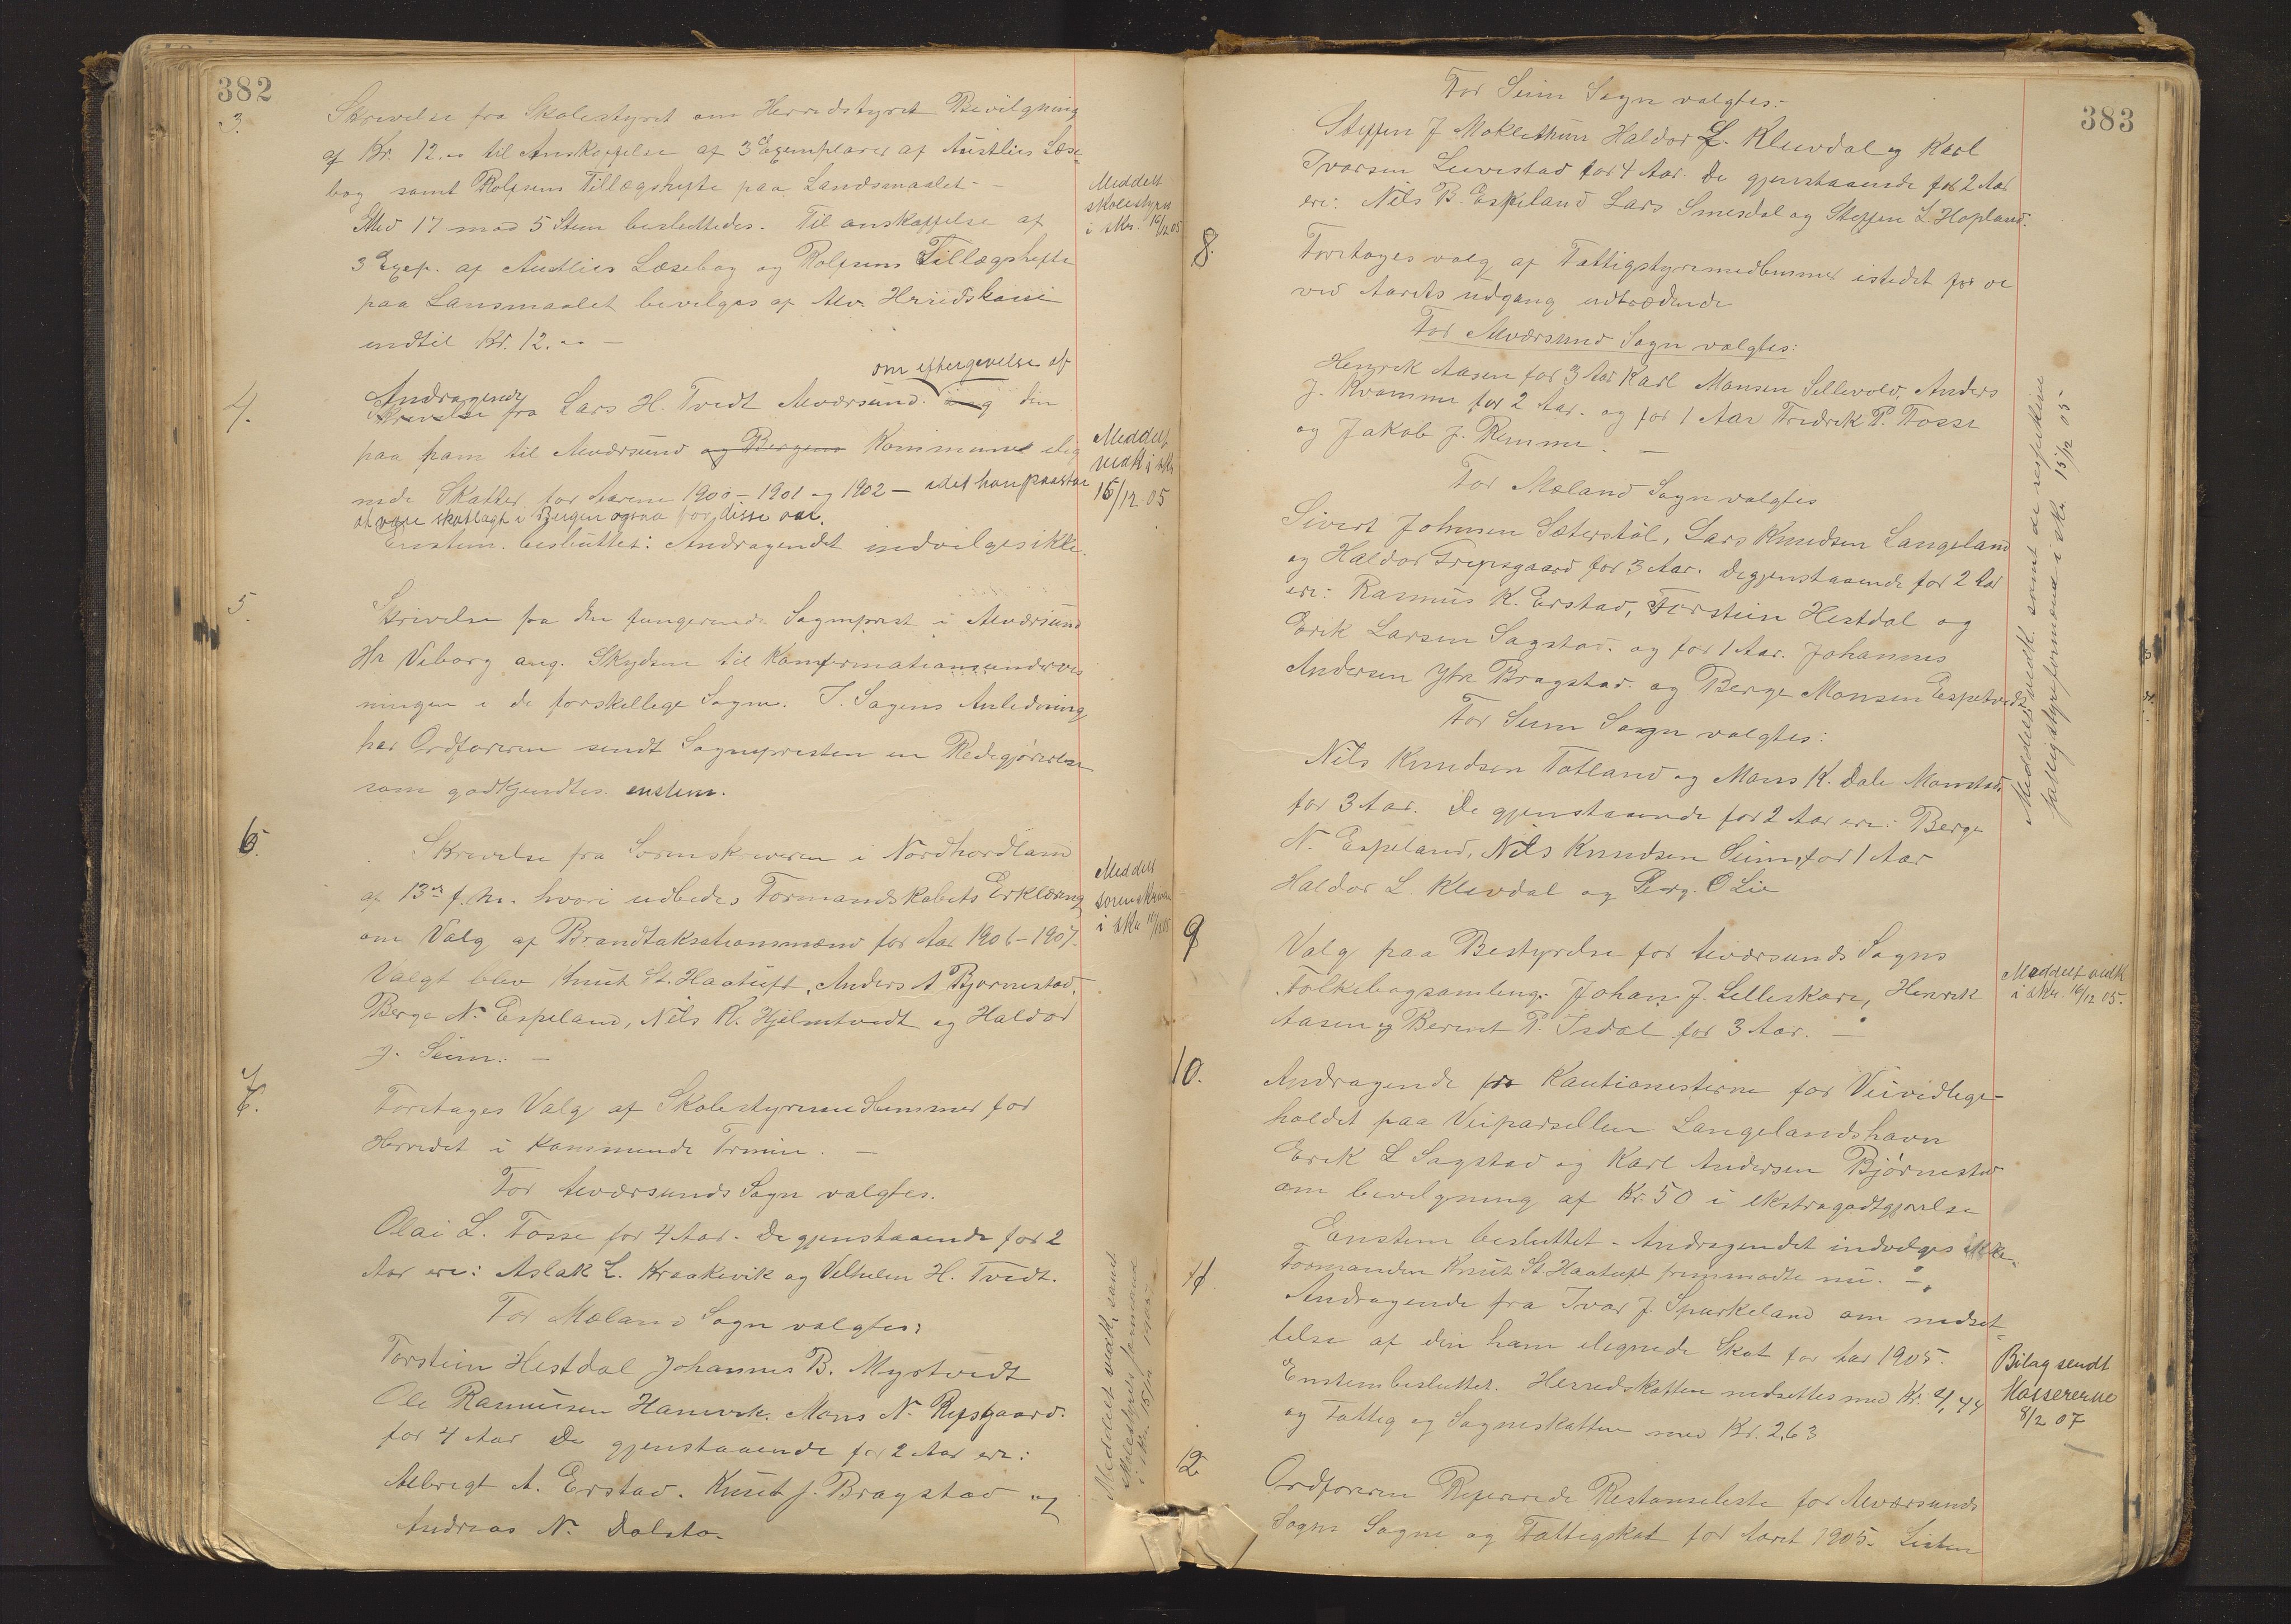 382
3.
Skrivelse fra Skolestyret om Herredstyret Bevilgning
af Kr. 12.00 til Anskaffelse af 3 Exemplarer af Austlies Læse-
bog samt Rolfsens Tillægshefte paa Landsmaalet -
Med 17 mod 5 Stem besluttedes. Til anskaffelse af
3 Exep. af Austlies Læsebog og Rolfsens Tillægshefte
paa Lansmaalet bevilges af Alv. Herredskasse
indtil Kr. 12.00 -
Meddelt
skolestyret
i skr. 16/12 05
4.
om eftergivelse af
Andragende
Skrivelse fra Lars H. Tvedt Alværsund og den
paa ham til Alværsund og Bergens Kommune elig
nede Skatter for Aarene 1900 - 1901 og 1902 - idet han paastaar
at være skatlagt i Bergen ogsaa for disse aar.
Enstem. besluttet: Andragendet indvilges ikke.
Meddelt
vedk i skr
15/12 05
5.
Skrivelse fra den fungerende Sogneprest i Alværsund
Hr Viborg ang. Skydsen til Konfirmationsundervis
ningen i de forskellige Sogne. I Sagens Anledning
har Ordføreren sendt Sognepresten en Redegjørelse
som godkjendtes enstem.
6.
Skrivelse fra Sorenskriveren i Nordhordland
af 13de f. m. hvori udbedes Formandskabets Erklæring
om Valg af Brandtakstionsmænd for Aar 1906-1907.
Valgt blev Knut St. Haatuft, Anders A Bjørnestad,
Berge N. Espeland, Nils K. Hjelmtvedt og Haldor
J. Seim. -
Meddelt
sorenskriveren
i skr 16/12 05
7.
Foretages Valg af Skolestyremedlemmer for
Herredet i kommende Termin. -
For Alværsunds Sogn valgtes.
Olai L. Fosse for 4 Aar. De gjenstaaende for 2
Aar ere: Aslak L. Kraakevik og Vilhelm H. Tvedt.
For Mæland Sogn valgtes:
Torstein Hestdal Johannes B. Myrtvedt
Ole Rasmussen Hanevik. Mons N. Repsgaard.
for 4 Aar De gjenstaaende for 2 Aar ere:
Albregt A. Erstad. Knut J. Bragstad og
Andreas N. Dalstø.
Meddelt vedk. samt
skolestyrets formænd
i skr. 15/12 1905
383
For Seim Sogn valgtes.-
Steffen J Moklethun Haldor L. Kleivdal og Karl
Ivarsen Leivestad for 4 Aar. De gjenstaaende for 2 Aar
ere: Nils B. Espeland Lars Smesdal og Steffen L. Hopland.
8.
Foretages valg af Fattigstyremedlemmer istedet for de
ved Aarets udgang udtrædende
For Alværsund Sogn valgtes:
Henrik Aasen for 3 Aar Karl Monsen Sellevold, Anders
J. Kvamme for 2 Aar. og for 1 Aar Fredrik P. Fosse
og Jakob J. Remme. -
For Mæland Sogn valgtes
Sivert Johnsen Sæterstøl, Lars Knudsen Langeland
og Haldor Trepsgaard for 3 Aar. De gjenstaaende for 2 Aar
ere: Rasmus K. Erstad, Torstein Hestdal og
Erik Larsen Sagstad. og for 1 Aar. Johannes
Andersen Ytre Bragstad. og Berge Monsen Espetvedt
For Seim Sogn valgtes:
Nils Knudsen Totland og Mons K. Dale Monstad.
for 3 Aar. De gjenstaaende for 2 Aar ere: Berge
N. Espeland, Nils Knudsen Seim, for 1 Aar
Haldor L. Kleivdal og Berg. O Lie
Meddelt vedk. samt de respektive
fattigstyreformænd i skr. 15/12 05
9
Valg paa Bestyrelse for Alværsunds Sogns
Folkebogsamling. Johan J. Lilleskare, Henrik
Aasen og Bernt P. Isdal for 3 Aar. -
Meddelt vedk
i skr. 16/12 05.
10.
Andragende fra Kautionisterne for Veividlige-
holdet paa Veiparsellen Langelandshavn
Erik L Sagstad og Karl Andersen Bjørnestad
om bevilgning af Kr. 50 i ekstragodtgjørelse
Enstem besluttet - Andragendet indvilges ikke.
Formanden Knut St. Haatuft fremmødte nu. -
11.
Andragende fra Ivar J. Spurkeland om nedset-
telse af den ham elignede Skat for Aar 1905.
Enstem besluttet. Herredskatten nedsettes med Kr. 4,44
og Fattig og Sogneskatten med Kr. 2,63
Bilag sendt
Kassererne
8/2 07
12
Ordføreren Refererede Restanseliste for Alværsunds
Sogns Sogne og Fattigskat for Aaret 1905. Listen